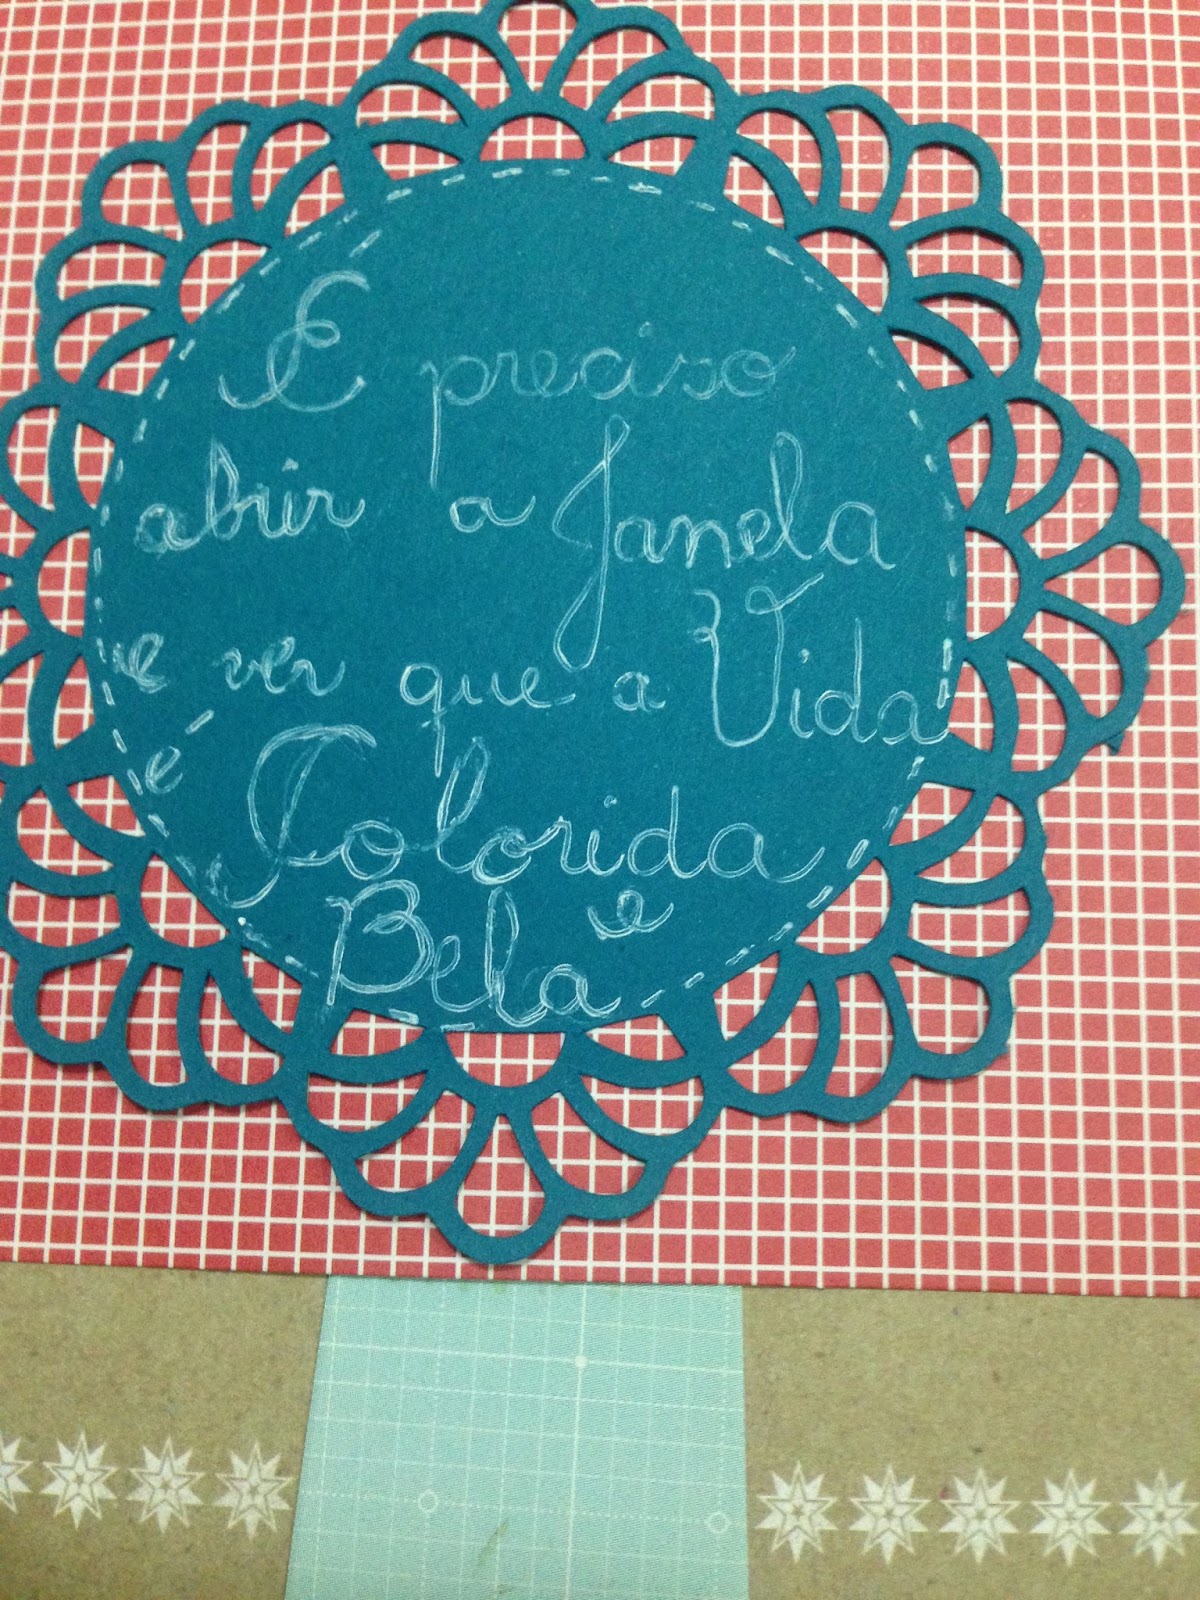 É preciso
abrir a Janela
e ver que a Vida
é Colorida
e
Bela